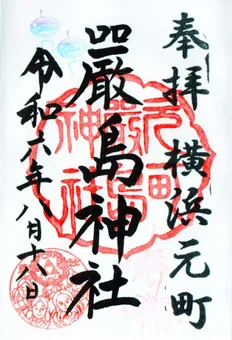 奉拝 横浜元町
元町
嚴島
神社
嚴島神社
令和六年八月十八日